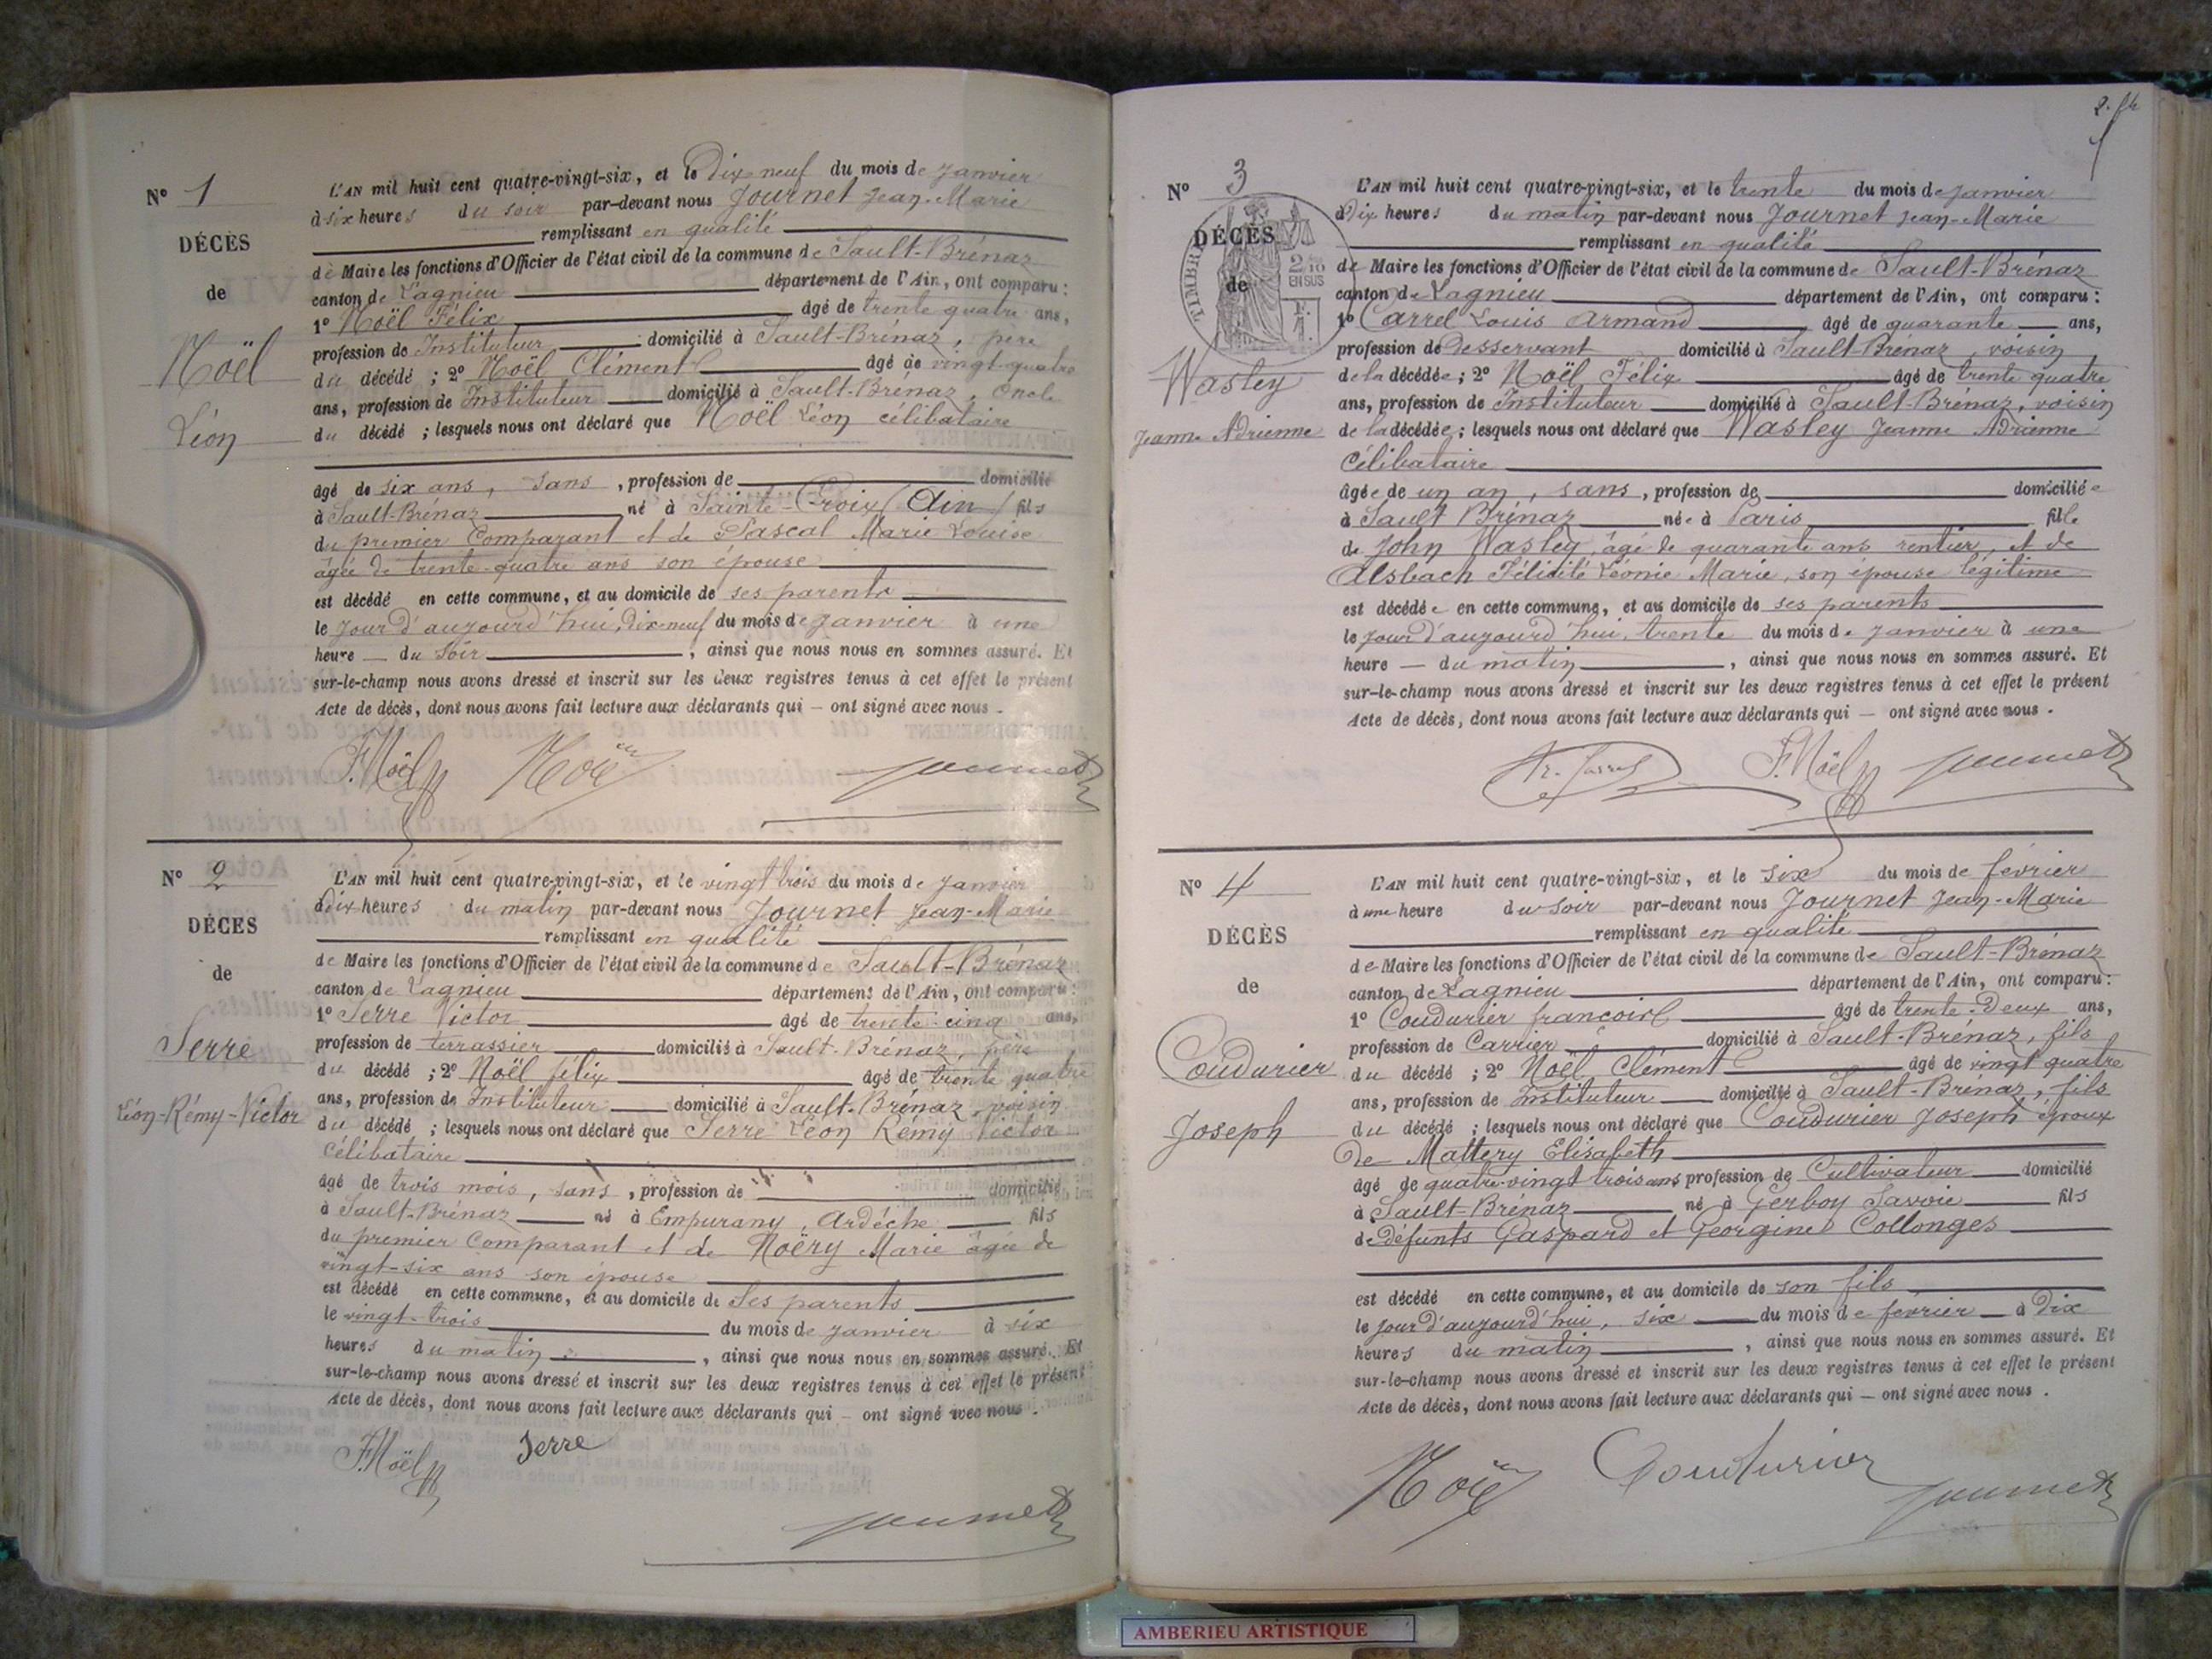 Nº 1
DÉCÈS
de
Noël
Léon
L'AN mil huit cent quatre-vingt-six, et le Dix-neuf du mois de Janvier
à six heures du soir par-devant nous Journet Jean-Marie
remplissant en qualité
de Maire les fonctions d'Officier de l'état civil de la commune de Sault-Brénaz
canton de Lagnieu département de l'Ain, ont comparu :
1º Noël Félix âgé de trente quatre ans,
profession de Instituteur domicilié à Sault-Brénaz, père
du décédé ; 2º Noël Clément âgé de vingt-quatre
ans, profession de Instituteur domicilié à Sault-Brénaz, Oncle
du décédé ; lesquels nous ont déclaré que Noël Léon célibataire
âgé de six ans, sans, profession de domicilié
à Sault-Brénaz né à Sainte-Croix (Ain) fils
du premier Comparant et de Pascal Marie Louise
âgée de trente-quatre ans son épouse
est décédé en cette commune, et au domicile de ses parents
le jour d'aujourd'hui, dix-neuf du mois de Janvier à une
heure — du soir, ainsi que nous nous en sommes assuré. Et
sur-le-champ nous avons dressé et inscrit sur les deux registres tenus à cet effet le présent
Acte de décès, dont nous avons fait lecture aux déclarants qui — ont signé avec nous.
F. Noël Noël Journet
Nº 2
DÉCÈS
de
Serre
Léon-Rémy-Victor
L'AN mil huit cent quatre-vingt-six, et le vingt trois du mois de Janvier
à dix heures du matin par-devant nous Journet Jean-Marie
remplissant en qualité
de Maire les fonctions d'Officier de l'état civil de la commune de Sault-Brénaz
canton de Lagnieu département de l'Ain, ont comparu :
1º Serre Victor âgé de trente-cinq ans,
profession de terrassier domicilié à Sault-Brénaz, père
du décédé ; 2º Noël félix âgé de trente quatre
ans, profession de Instituteur domicilié à Sault-Brénaz, voisin
du décédé ; lesquels nous ont déclaré que Serre Léon Rémy Victor
Célibataire
âgé de trois mois, sans, profession de domicilié
à Sault-Brénaz né à Empurany, Ardèche fils
du premier Comparant et de Noëry Marie âgée de
vingt-six ans son épouse
est décédé en cette commune, et au domicile de ses parents
le vingt-trois du mois de Janvier à six
heures du matin, ainsi que nous nous en sommes assuré. Et
sur-le-champ nous avons dressé et inscrit sur les deux registres tenus à cet effet le présent
Acte de décès, dont nous avons fait lecture aux déclarants qui — ont signé avec nous.
F. Noël Serre
Journet
Nº 3
DÉCÈS
de
TIMBRE
2/10 EN SUS
Wasley
Jeanne Adrienne
L'AN mil huit cent quatre-vingt-six, et le trente du mois de Janvier
à Dix heures du matin par-devant nous Journet Jean-Marie
remplissant en qualité
de Maire les fonctions d'Officier de l'état civil de la commune de Sault-Brénaz
canton de Lagnieu département de l'Ain, ont comparu :
1º Carrel Louis Armand âgé de quarante — ans,
profession de desservant domicilié à Sault-Brénaz, voisin
de la décédée ; 2º Noël Félix âgé de trente quatre
ans, profession de Instituteur domicilié à Sault-Brénaz, voisin
de la décédée ; lesquels nous ont déclaré que Wasley Jeanne Adrienne
Célibataire
âgée de un an, sans, profession de domiciliée
à Sault Brénaz née à Paris fille
de John Wasley, âgé de quarante ans rentier, et de
Alsbach Félicité Léonie Marie, son épouse légitime
est décédée en cette commune, et au domicile de ses parents
le jour d'aujourd'hui, trente du mois de Janvier à une
heure — du matin, ainsi que nous nous en sommes assuré. Et
sur-le-champ nous avons dressé et inscrit sur les deux registres tenus à cet effet le présent
Acte de décès, dont nous avons fait lecture aux déclarants qui — ont signé avec nous.
F. Noël Journet
Nº 4
DÉCÈS
de
Coudurier
Joseph
L'AN mil huit cent quatre-vingt-six, et le six du mois de février
à une heure du soir par-devant nous Journet Jean-Marie
remplissant en qualité
de Maire les fonctions d'Officier de l'état civil de la commune de Sault-Brénaz
canton de Lagnieu département de l'Ain, ont comparu :
1º Coudurier françois âgé de trente-Deux ans,
profession de Carrier domicilié à Sault-Brénaz, fils
du décédé ; 2º Noël Clément âgé de vingt quatre
ans, profession de Instituteur domicilié à Sault-Brénaz, fils
du décédé ; lesquels nous ont déclaré que Coudurier Joseph époux
De Mattery Elisabeth
âgé de quatre-vingt trois ans profession de Cultivateur domicilié
à Sault-Brénaz né à Gerboy Savoie fils
de Défunts Gaspard et Georgine Collonges
est décédé en cette commune, et au domicile de son fils
le jour d'aujourd'hui, six du mois de février à Dix
heures du matin, ainsi que nous nous en sommes assuré. Et
sur-le-champ nous avons dressé et inscrit sur les deux registres tenus à cet effet le présent
Acte de décès, dont nous avons fait lecture aux déclarants qui — ont signé avec nous.
Noël Coudurier Journet
AMBERIEU ARTISTIQUE